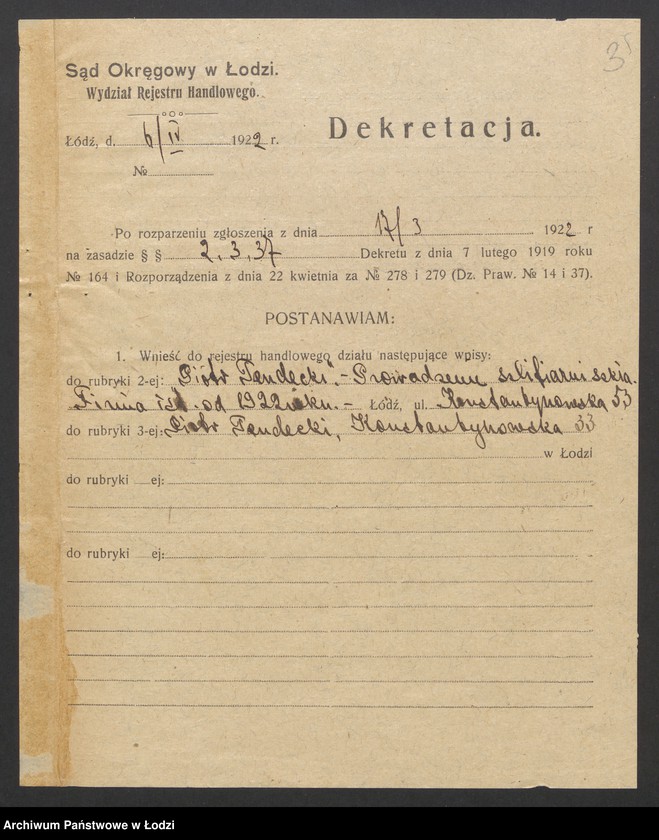 35
Sąd Okręgowy w Łodzi.
Wydział Rejestru Handlowego.
Łódź, d. 6/IV 1922 r.
Dekretacja.
№
Po rozparzeniu zgłoszenia z dnia 17/3 1922 r
na zasadzie § § 2, 3, 37 Dekretu z dnia 7 lutego 1919 roku
№ 164 i Rozporządzenia z dnia 22 kwietnia za № 278 i 279 (Dz. Praw. № 14 i 37).
POSTANAWIAM:
1. Wnieść do rejestru handlowego działu następujące wpisy:
do rubryki 2-ej: "Piotr Tandecki".- Prowadzenie szlifierni szkła.
Firma ist. od 1922 roku. - Łódź, ul. Konstantynowska 53
do rubryki 3-ej: Piotr Tandecki, Konstantynowska 33
w Łodzi
do rubryki ej:
do rubryki ej:
Archiwum Państwowe w Łodzi